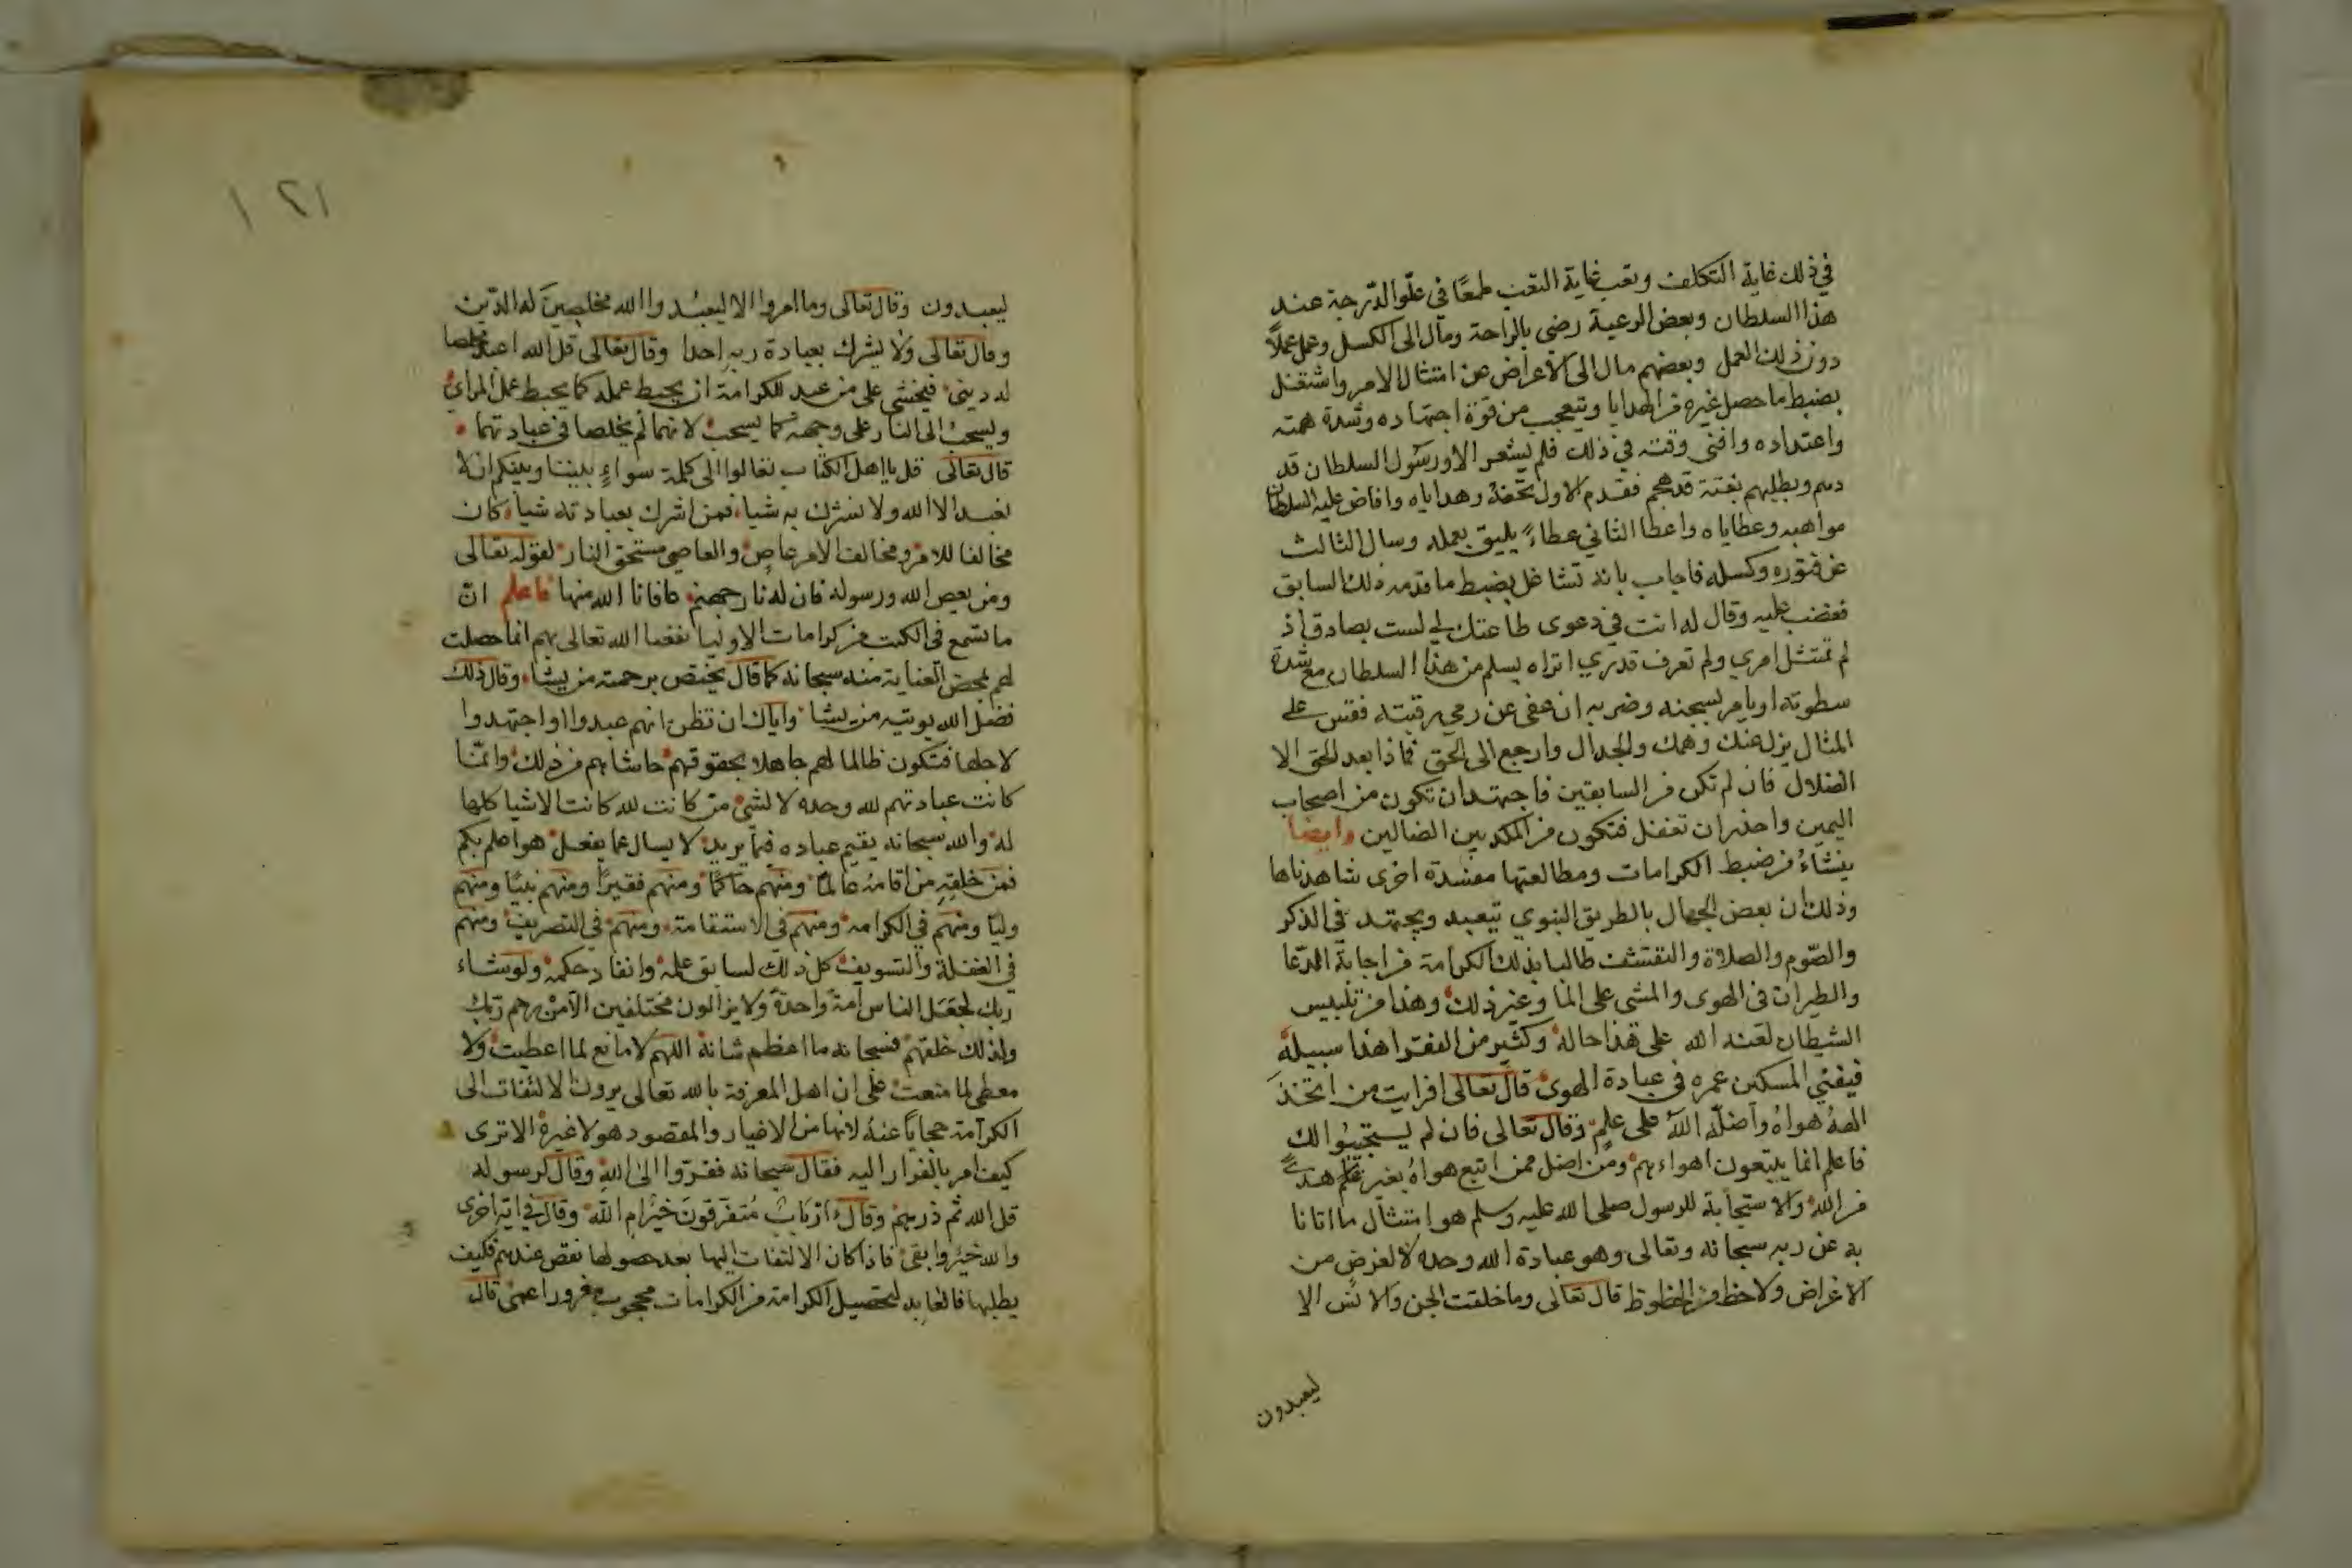 في ذلك غاية التكلف وتعب غاية التعب طمعًا في علّو الدّرجة عند
هذا السلطان وبعض الرعية رضي بالراحة ومال الى الكسل وعمل عملاً
دون ذلك العمل وبعضهم مال الى الاعراض عن امتثال الامر واشتغل
بضبط ما حصل غيره من الهدايا وتعجب من قوة اجتهاده وشدة همته
واعتداده وافنى وقته في ذلك فلم يشعر الا ورسول السلطان قد
بغتة قد هجم فقدم الاول تحفه وهداياه وافاض عليه السلطان
مواهبه وعطاياه واعطا الثاني عطاءً يليق بعمله وسال الثالث
عن فتوره وكسله فاجاب بانه تشاغل بضبط ما قدمه ذلك السابق
فغضب عليه وقال له انت في دعوى طاعتك لي لست بصادق اذ
لم تمتثل امري ولم تعرف قدري اتراه يسلم من هذا السلطان مع شدة
سطوته او يامر بسجنه وضربه ان عفى عن رمي رقبته فقس على
المثال يزل عنك وهمك والجدال وارجع الى الحق فماذا بعد الحق الا
الضلال فان لم تكن من السابقين فاجتهد ان تكون من اصحاب
اليمين واحذر ان تغفل فتكون من المكذبين الضالين وايضا
ينشاءُ من ضبط الكرامات ومطالعتها مفسدة اخرى شاهدناها
وذلك ان بعض الجهال بالطريق النبوي يتعبد ويجتهد في الذكر
والصّوم والصلاة والتقشف طالبا بذلك الكرامة من اجابة الدّعا
والطيران في الهوى والمشي على الما وغير ذلك وهذا من تلبيس
الشيطان لعنه الله على هذا حاله وكثير من الفقرا هذا سبيله
فيفني المسكين عمره في عبادة الهوى قال تعالى افرايت من اتخذَ
الههُ هواهُ وأضلّه اللهُ على علمٍ وقال تعالى فان لم يستجيبوا لك
فاعلم انما يتبعون اهواءهم ومن اضل ممن اتبع هواهُ بغير علم هدىً
من الله والاستجابة للرسول صلى الله عليه وسلم هو امتثال ما اتانا
به عن ربه سبحانه وتعالى وهو عبادة الله وحده لا لغرض من
الاغراض ولا حظ من الحظوظ قال تعالى وما خلقت الجن والانس الا
ليعبدون
١٢١
ليعبدون وقال تعالى وما امروا الا ليعبُدوا الله مخلصينَ له الدّين
وقال تعالى ولا يشرك بعبادة ربه احدا وقال تعالى قل الله اعبد مخلصا
له ديني فيخشى على من عبد للكرامة ان يحبط عمله كما يحبط عمل المرائي
ويسحبُ الى النار على وجهه كما يسحب لانهما لم يخلصا في عبادتهما
قال تعالى قل يا اهل الكتاب تعالوا الى كلمة سواءٍ بيننا وبينكم ان لا
نعبد الا الله ولا نشرك به شيا فمن اشرك بعبادته شيا كان
مخالفا للامر ومخالف الامر عاصٍ والعاصي مستحق النار لقوله تعالى
ومن يعص الله ورسوله فان له نار جهنم عافانا الله منها فاعلم انّ
ما تسمع في الكتب من كرامات الاوليا نفعنا الله تعالى بهم انما حصلت
لهم بمحض العناية منه سبحانه كما قال يختص برحمته من يشا وقال ذلك
فضل الله يوتيه من يشا واياك ان تظن انهم عبدوا او اجتهدوا
لاجلها فتكون ظالما لهم جاهلا بحقوقهم حاشاهم من ذلك وانمّا
كانت عبادتهم لله وحده لا لشي من كانت لله كانت الاشيا كلها
له والله سبحانه يقيم عباده فيما يريد لا يسال عما يفعل هو اعلم بكم
فمن خلقِه من اقامهُ عالماً ومنهم حاكماً ومنهم فقيراً ومنهم نبيًا ومنهم
وليًا ومنهم في الكرامه ومنهم في الاستقامة ومنهم في التصريف ومنهم
في الغفلة والتسويف كل ذلك لسابق علمه وانفاد حكمه ولو شاء
ربك لجعَل الناس أمةً واحدةً ولا يزالون مختلفين الا من رحم ربك
ولذلك خلقهم فسبحانه ما اعظم شانه اللهم لا مانع لما اعطيت ولا
معطي لما منعت على ان اهل المعرفة بالله تعالى يرون الالتفات الى
الكرامة حجاباً عنهُ لانها من الاغيار والمقصود هو لا غيرهُ الا ترى
كيف امر بالفرار اليه فقال سبحانه ففرّوا الى اللهِ وقال لرسوله
قل الله ثم ذرهم وقال أاربابٌ مُتفرّقونَ خيرٌ ام اللّه وقال في اية اخرى
والله خيرٌ وابقى فاذا كان الالتفات اليها بعد حصولها نقص عندهم فكيف
بطلبها فالعابد لتحصيل الكرامة من الكرامات محجوب مغرور اعمى قال